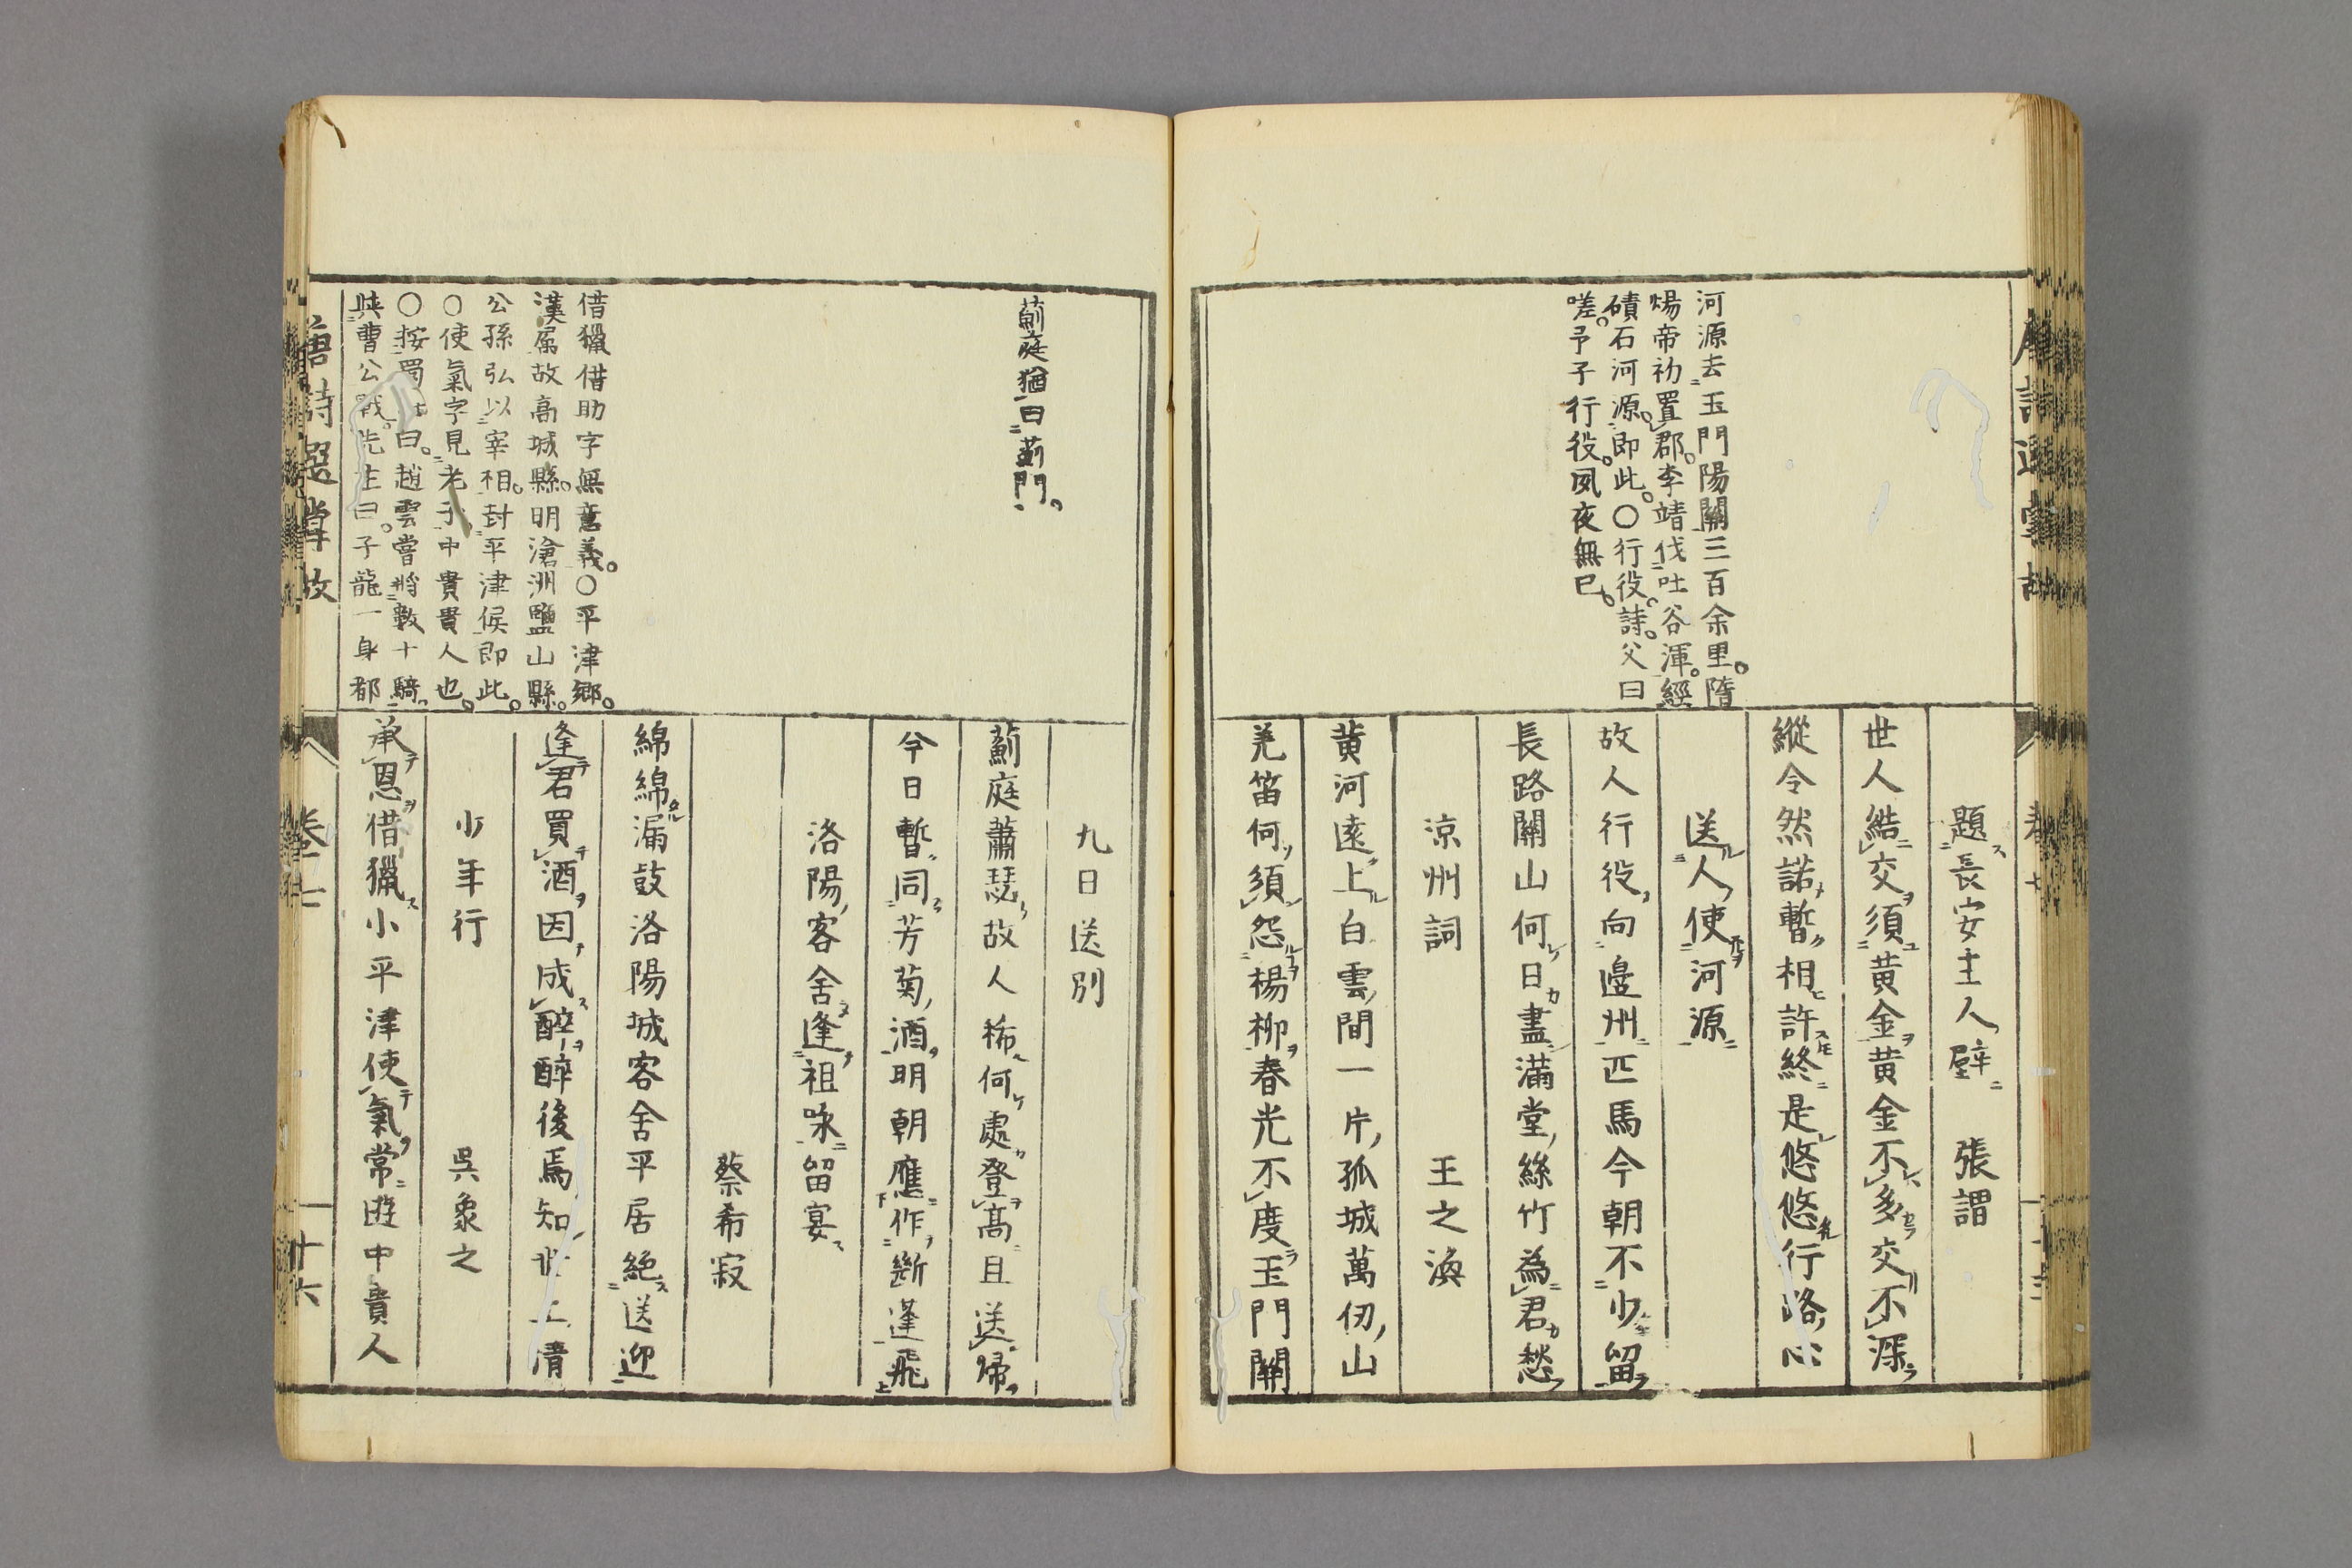 河源去玉門陽關三百余里。隋
煬帝初置郡。李靖伐吐谷渾。經
磧石河源。即此。〇行役。詩。父曰
嗟。予子行役。夙夜無已。
題長安主人壁　張謂
世人結交須黃金黃金不多交不深
縱令然諾暫相許終是悠悠行路心
送人使河源
故人行役向邊州匹馬今朝不少留
長路關山何日盡滿堂絲竹為君愁
涼州詞　王之渙
黃河遠上白雲間一片孤城萬仞山
羌笛何須怨楊柳春光不度玉門關
薊庭猶曰薊門。
借獵借助字無意義。〇平津鄉。
漢属故高城縣。明滄洲鹽山縣。
公孫弘以宰相。封平津侯即此。
〇使氣字見老子中貴貴人也。
〇按蜀曰。趙雲嘗將數十騎
與曹公戰。先主曰。子龍一身都
九日送別
薊庭蕭瑟故人稀何處登高且送歸
今日暫同芳菊酒明朝應作斷蓬飛
洛陽客舍逢祖咏留宴
蔡希寂
綿綿漏鼓洛陽城客舍平居絕送迎
逢君買酒因成醉醉後焉知世上情
少年行　吳象之
承恩借獵小平津使氣常遊中貴人
唐詩選掌故　卷七　十六